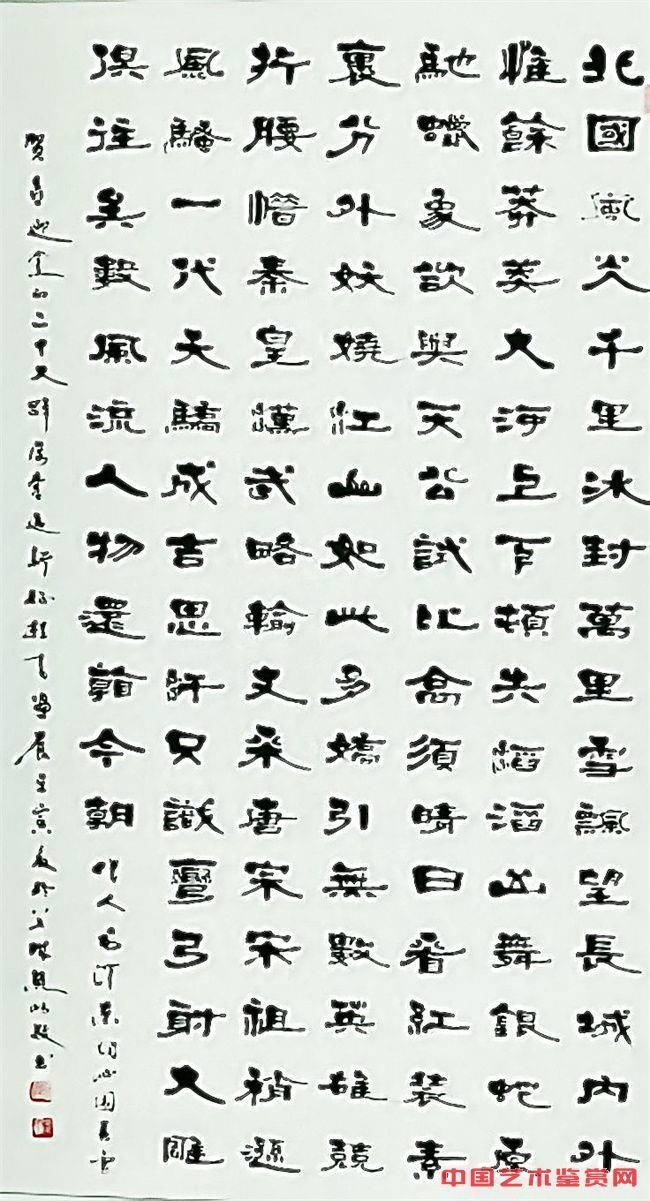 北國風光千里冰封萬里雪飄望長城内外
惟餘莽莽大河上下頓失滔滔山舞銀蛇原
馳蠟象欲與天公試比高須晴日看紅裝素
裹分外妖嬈江山如此多嬌引無數英雄競
折腰惜秦皇漢武略輸文采唐宗宋祖稍遜
風騷一代天驕成吉思汗只識彎弓射大雕
俱往矣數風流人物還看今朝 偉人毛澤東詞沁園春雪
賀喜迎党的二十大 展壬寅夏 書
中国艺术鉴赏网